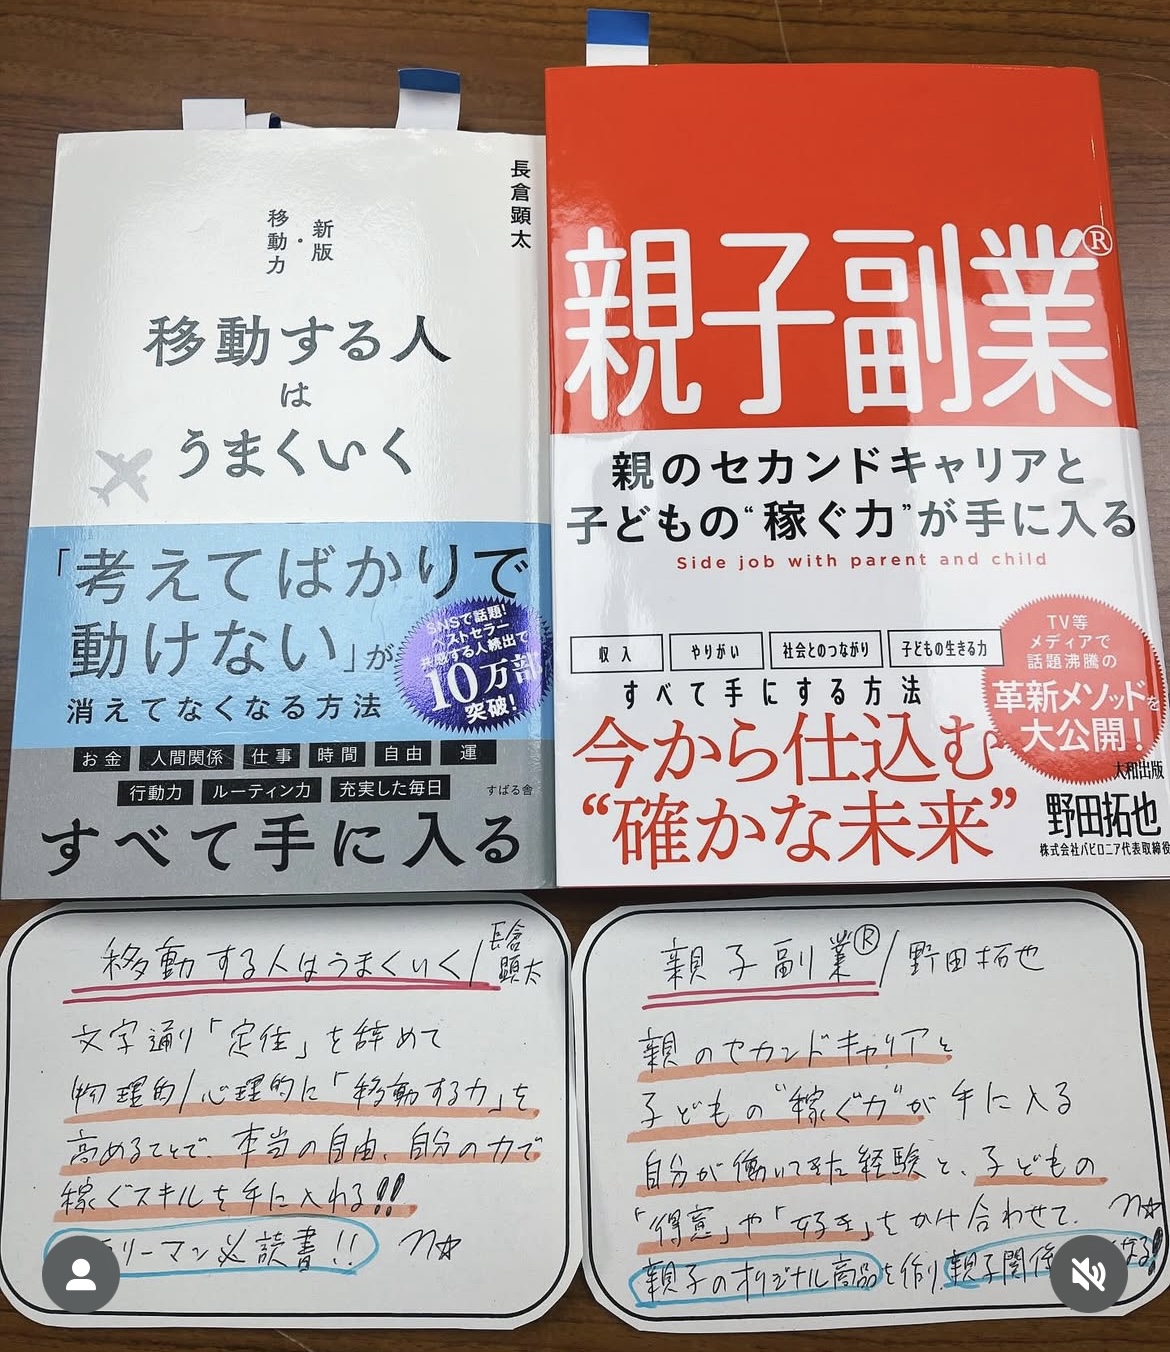 長倉顕太
新版
・
移動力
移動する人
は
うまくいく
「考えてばかりで
動けない」が
消えてなくなる方法
SNSで話題!
ベストセラー
共感する人続出で
10万部
突破!
お金 人間関係 仕事 時間 自由 運
行動力 ルーティン力 充実した毎日
すばる舎
すべて手に入る
親子副業®
親のセカンドキャリアと
子どもの“稼ぐ力”が手に入る
Side job with parent and child
収入 やりがい 社会とのつながり 子どもの生きる力
すべて手にする方法
今から仕込む
“確かな未来”
TV等
メディアで
話題沸騰の
革新メソッドを
大公開!
大和出版
野田拓也
株式会社バビロニア代表取締役
移動する人はうまくいく/長倉
顕太
文字通り「定住」を辞めて
物理的/心理的に「移動する力」を
高めることで、本当の自由、自分の力で
稼ぐスキルを手に入れる!!
リーマン必読書!!
親子副業®/野田拓也
親のセカンドキャリアと
子どもの“稼ぐ力”が手に入る
自分が働いてきた経験と、子どもの
「得意」や「好き」をかけ合わせて、
親子のオリジナル商品を作り、親子関係 なる!